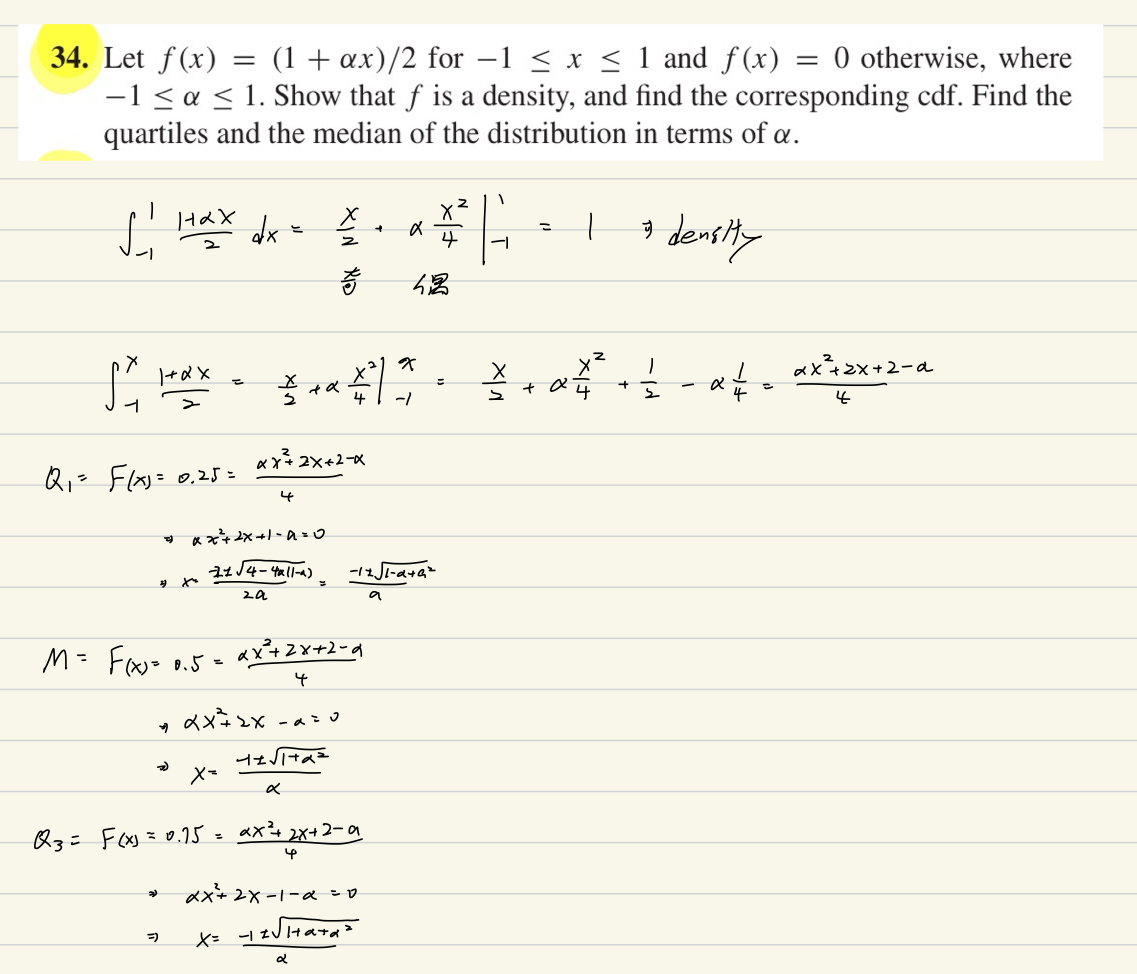 34. Let f(x) = (1 + αx)/2 for −1 ≤ x ≤ 1 and f(x) = 0 otherwise, where
−1 ≤ α ≤ 1. Show that f is a density, and find the corresponding cdf. Find the
quartiles and the median of the distribution in terms of α.
∫_{-1}^{1} (1+αx)/2 dx = x/2 + α x²/4 |_{-1}^{1} = 1 ⇒ density
奇 偶
∫_{-1}^{x} (1+αx)/2 = x/2 + α x²/4 |_{-1}^{x} = x/2 + α x²/4 + 1/2 − α 1/4 = (αx²+2x+2−α)/4
Q₁ = F(x) = 0.25 = (αx²+2x+2−α)/4
⇒ αx²+2x+1−α=0
⇒ x= (-2±√(4−4α(1−α)))/2α = (−1±√(1−α+α²))/α
M = F(x) = 0.5 = (αx²+2x+2−α)/4
⇒ αx²+2x −α=0
⇒ x= (−1±√(1+α²))/α
Q₃ = F(x) = 0.75 = (αx²+2x+2−α)/4
⇒ αx²+2x−1−α=0
⇒ x= (−1±√(1+α+α²))/α